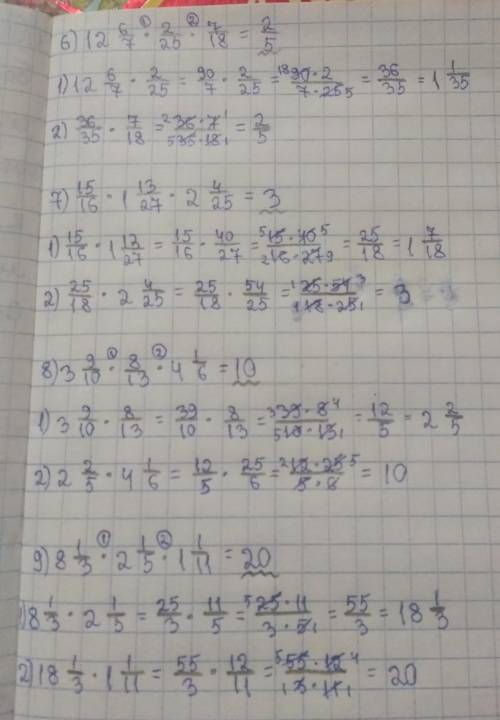 6) 12 6/7 · ① 2/25 · ② 7/18 = 2/5
1) 12 6/7 · 2/25 = 90/7 · 2/25 = 18 90 · 2 / 7 · 25 5 = 36/35 = 1 1/35
2) 36/35 · 7/18 = 2 36 · 7 1 / 5 35 · 18 1 = 2/5
7) 15/16 · 1 13/27 · 2 4/25 = 3
1) 15/16 · 1 13/27 = 15/16 · 40/27 = 5 15 · 40 5 / 2 16 · 27 9 = 25/18 = 1 7/18
2) 25/18 · 2 4/25 = 25/18 · 54/25 = 1 25 · 54 3 / 1 18 · 25 1 = 3
8) 3 9/10 · ① 8/13 · ② 4 1/6 = 10
1) 3 9/10 · 8/13 = 39/10 · 8/13 = 3 39 · 8 4 / 5 10 · 13 1 = 12/5 = 2 2/5
2) 2 2/5 · 4 1/6 = 12/5 · 25/6 = 2 12 · 25 5 / 5 · 6 = 10
9) 8 1/3 · ① 2 1/5 · ② 1 1/11 = 20
1) 8 1/3 · 2 1/5 = 25/3 · 11/5 = 5 25 · 11 / 3 · 5 1 = 55/3 = 18 1/3
2) 18 1/3 · 1 1/11 = 55/3 · 12/11 = 5 55 · 12 4 / 1 3 · 11 1 = 20